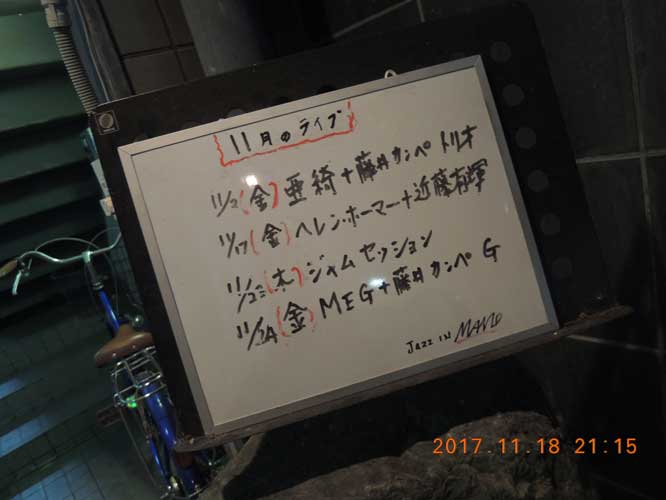 11月のライブ
11/2(金)亜綺+藤井カンペトリオ
11/17(金)ヘレンホーマー+近藤有輝
11/23(木)ジャムセッション
11/24(金)MEG+藤井カンペG
Jazz IN
2017.11.18 21:15